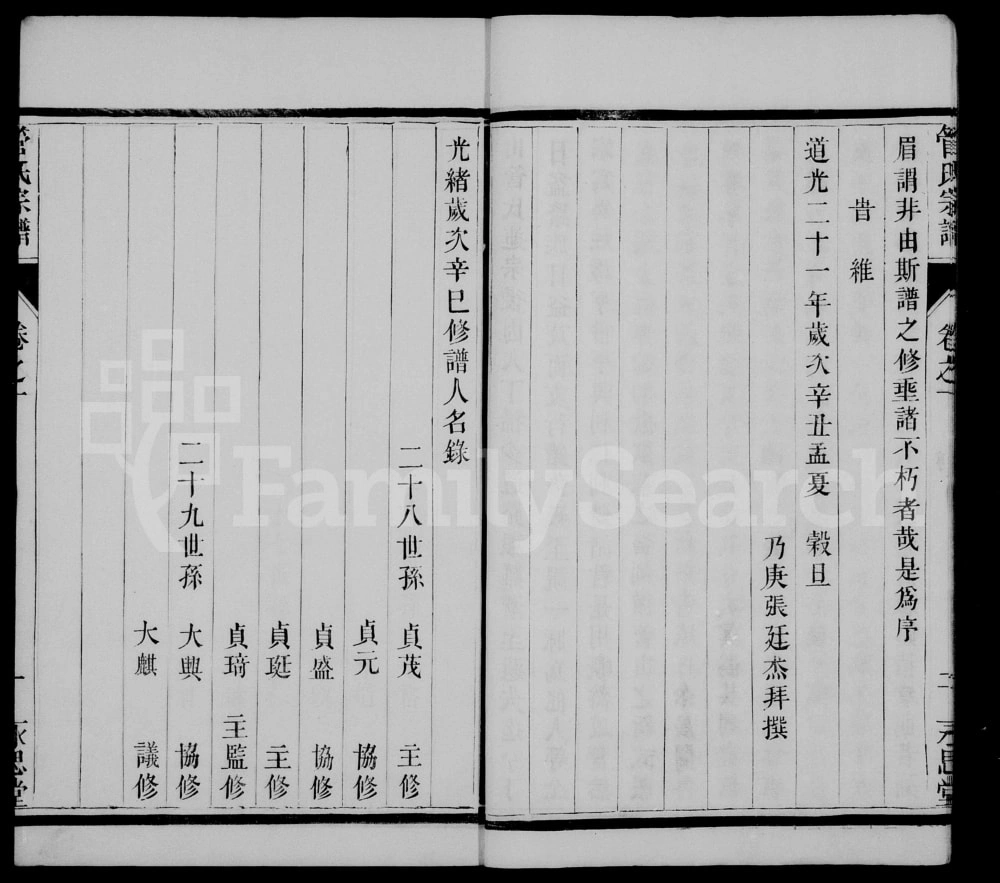 管氏宗譜
卷之一
二
永思堂
眉謂非由斯譜之修垂諸不朽者哉是爲序
旹維
道光二十一年歲次辛丑孟夏 榖旦
乃庚張廷杰拜撰
光緖歲次辛巳修譜人名錄
二十八世孫 貞茂 主修
貞元 協修
貞盛 協修
貞珽 主修
貞琦 主監修
二十九世孫 大興 協修
大麒 議修
管氏宗譜
卷之一
一
永思堂
FamilySearch